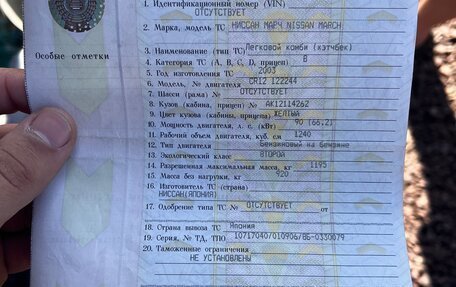 1. Идентификационный номер (VIN)
ОТСУТСТВУЕТ
2. Марка, модель ТС НИССАН МАРЧ NISSAN MARCH
3. Наименование (тип ТС) Легковой комби (хэтчбек)
4. Категория ТС (A, B, C, D, прицеп) B
5. Год изготовления ТС 2003
6. Модель, № двигателя CR12 122244
7. Шасси (рама) № ОТСУТСТВУЕТ
8. Кузов (кабина, прицеп) № AK12114262
9. Цвет кузова (кабины, прицепа) ЖЕЛТЫЙ
10. Мощность двигателя, л. с. (кВт) 90 (66,2)
11. Рабочий объем двигателя, куб. см 1240
12. Тип двигателя Бензиновый на бензине
13. Экологический класс ВТОРОЙ
14. Разрешенная максимальная масса, кг 1195
15. Масса без нагрузки, кг 920
16. Изготовитель ТС (страна)
НИССАН(ЯПОНИЯ)
17. Одобрение типа ТС № ОТСУТСТВУЕТ от
18. Страна вывоза ТС Япония
19. Серия, № ТД, ТПО 10717040/010906/ВБ-0330079
20. Таможенные ограничения
НЕ УСТАНОВЛЕНЫ
Особые отметки